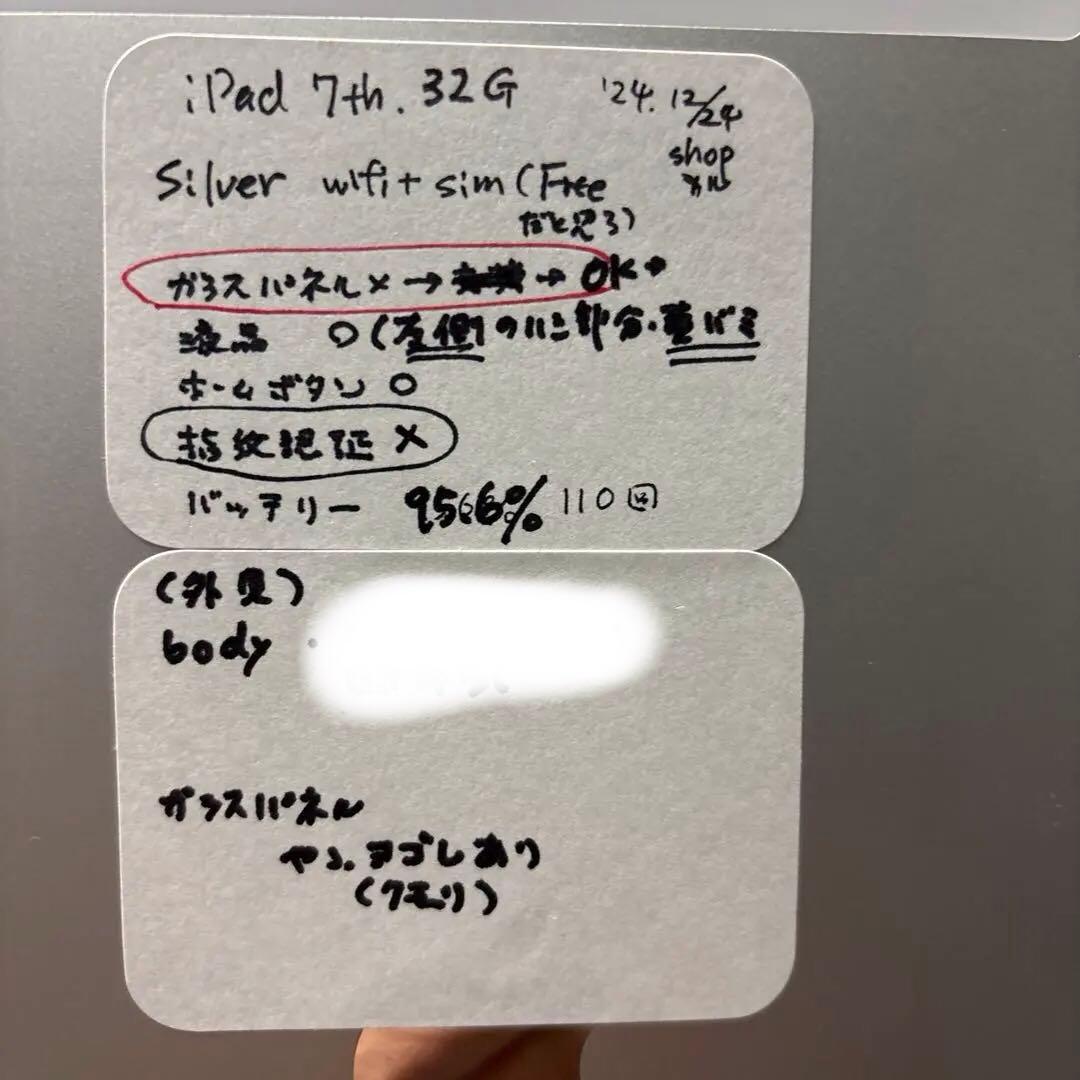 iPad 7th. 32G '24. 12/24
shop
メル
Silver wifi+sim(Free
だと思う)
ガラスパネル× → → OK
液品 ○(左側のハシ部分・黄バミ
ホームボタン ○
指紋認証 ×
バッテリー 95.6% 110回
(外見)
body ・
ガラスパネル
やゝヨゴレあり
(クモリ)